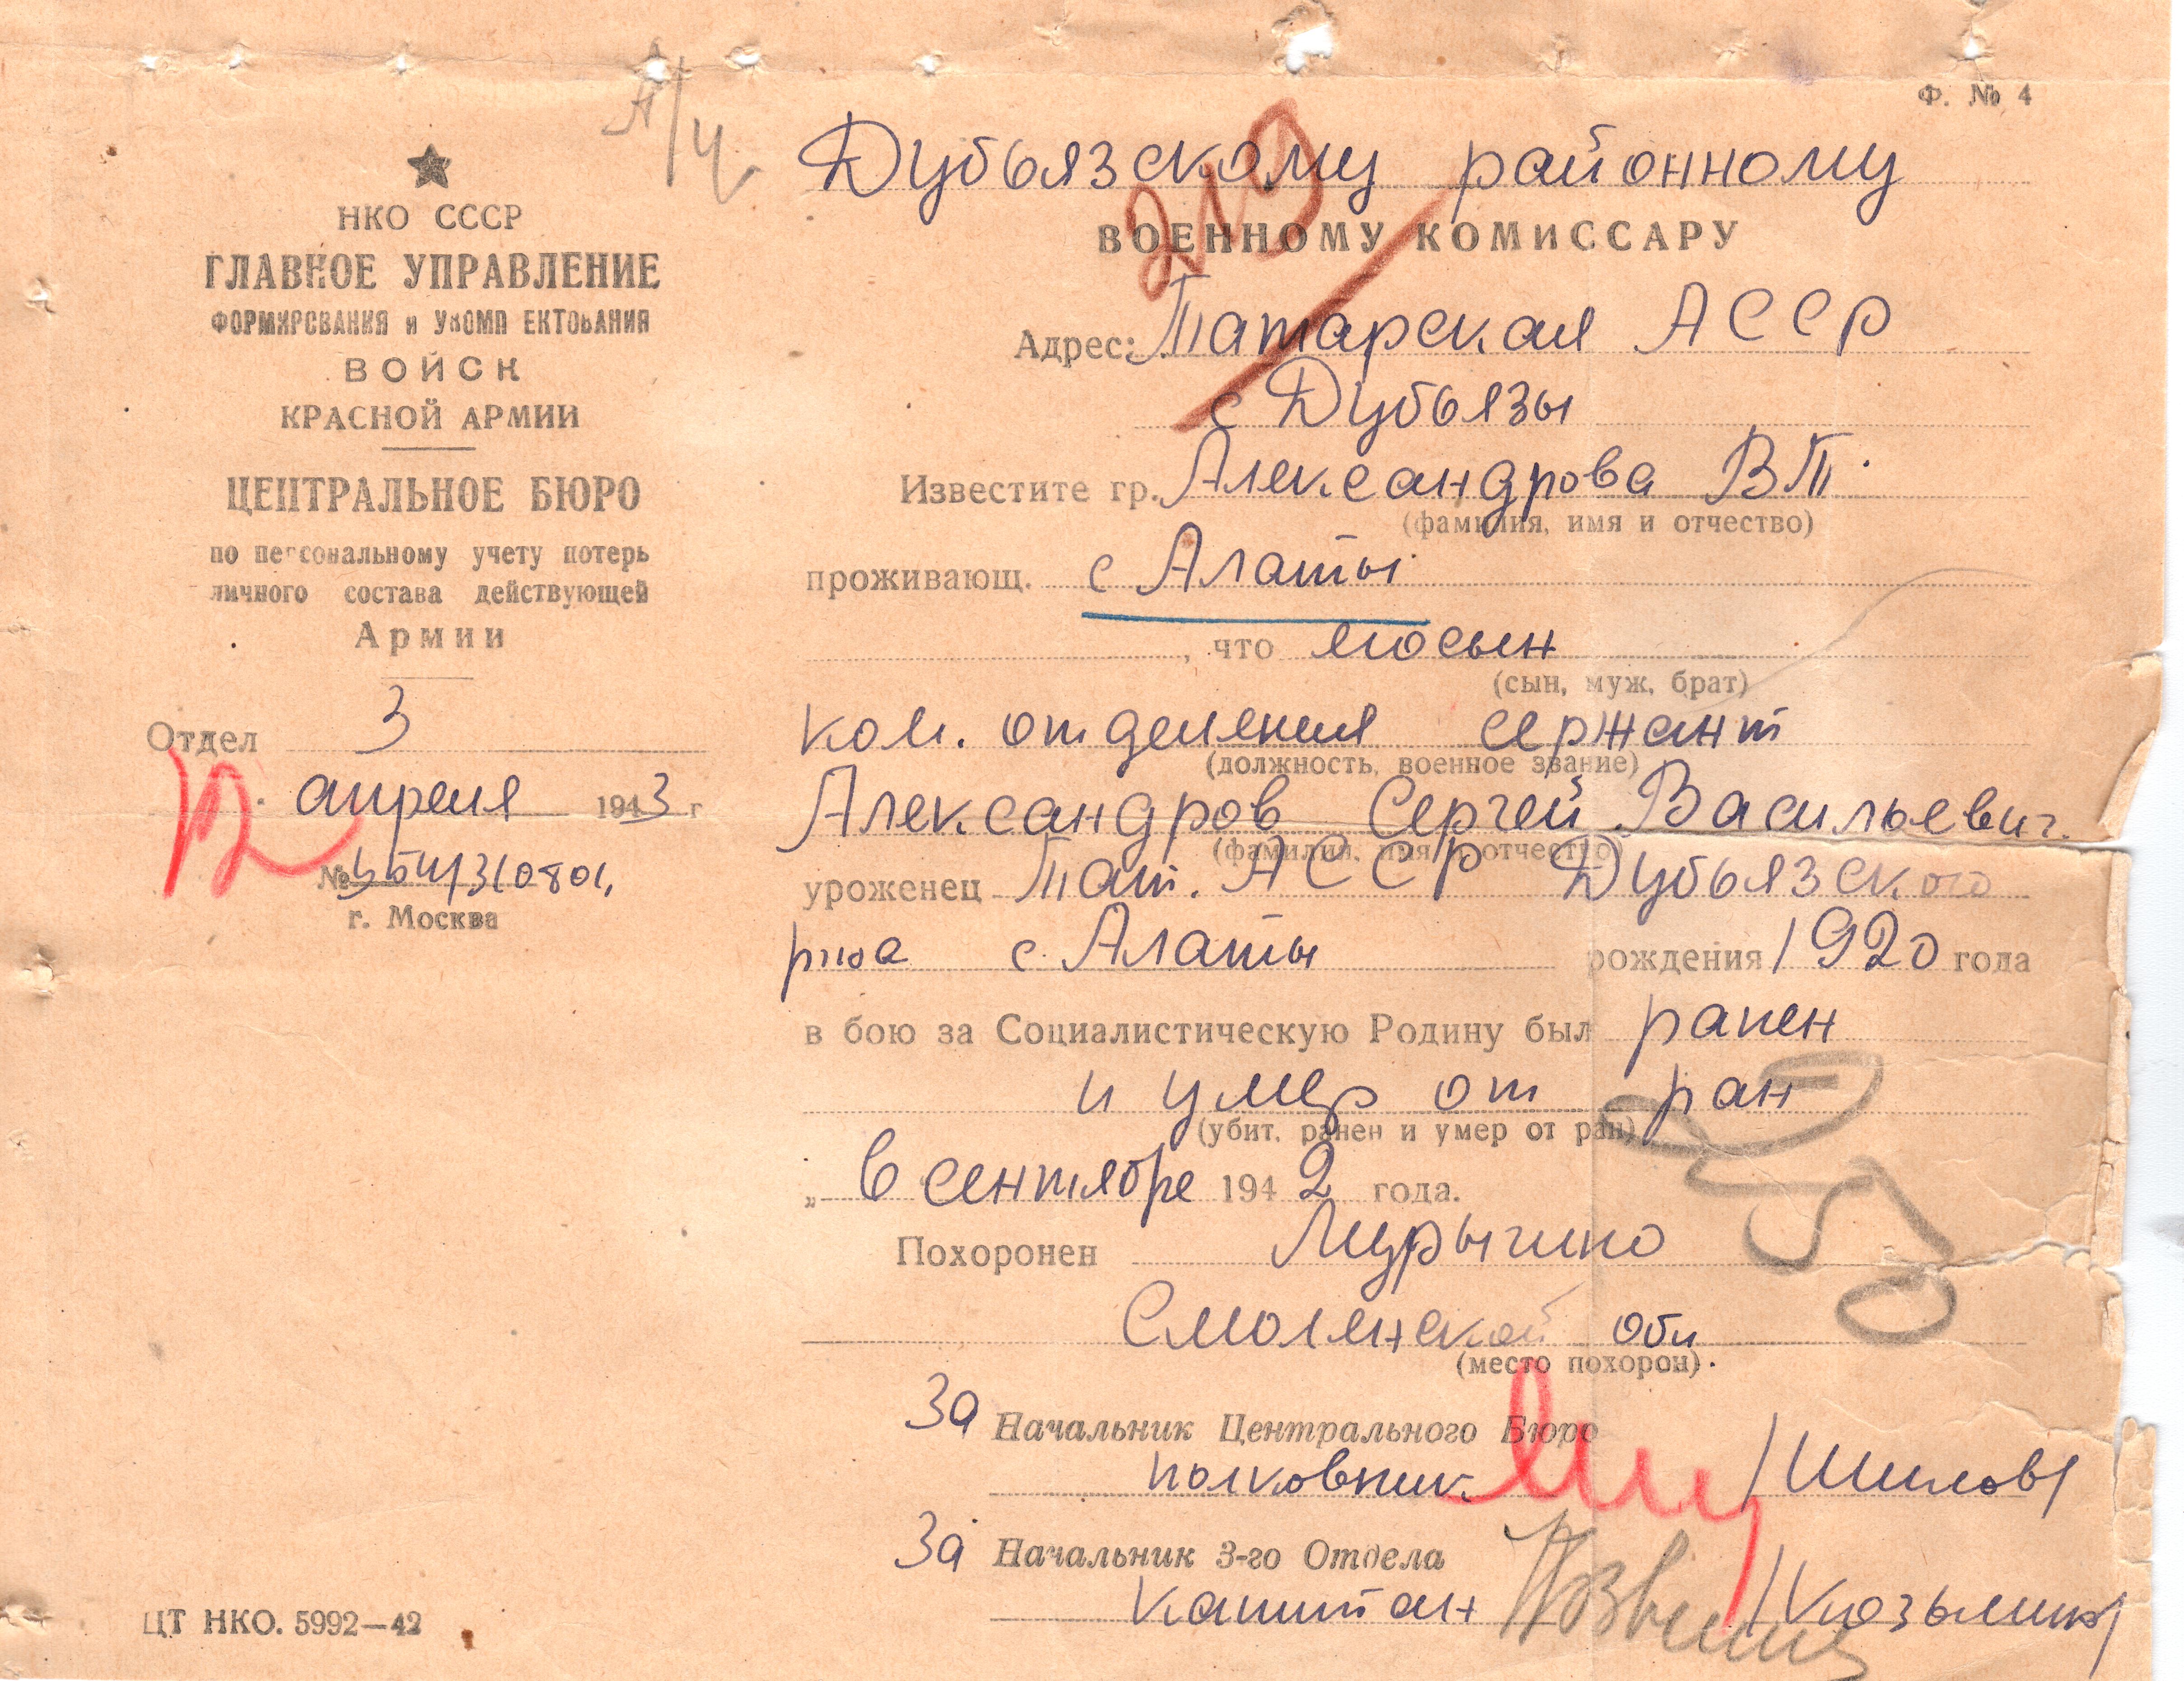 Ф. № 4
НКО СССР
ГЛАВНОЕ УПРАВЛЕНИЕ
ФОРМИРОВАНИЯ и УКОМП ЕКТОВАНИЯ
ВОЙСК
КРАСНОЙ АРМИИ
ЦЕНТРАЛЬНОЕ БЮРО
по персональному учету потерь
личного состава действующей
Армии
Отдел 3
12 апреля 1943 г
№
г. Москва
ЦТ НКО. 5992—42
Дубьязскому районному
ВОЕННОМУ КОМИССАРУ
Адрес: Татарская АССР
с Дубьязы
Известите гр. Александрова В Т.
(фамилия, имя и отчество)
проживающ. с Алаты
, что его сын
(сын, муж, брат)
ком. отделения сержант
(должность, военное звание)
Александров Сергей Васильевич.
(фамилия, имя и отчество)
уроженец Тат. АССР Дубьязского
р-на с. Алаты рождения 1920 года
в бою за Социалистическую Родину был ранен
и умер от ран
(убит, ранен и умер от ран)
„ в сентябре 1942 года.
Похоронен Мурычино
Смоленской обл
(место похорон).
За Начальник Центрального Бюро
полковник /Шилов/
За Начальник 3-го Отдела
капитан